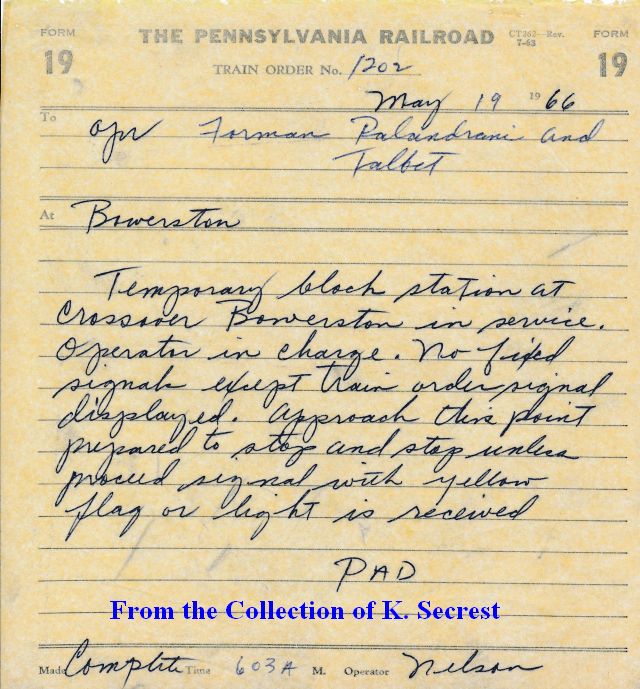 FORM THE PENNSYLVANIA RAILROAD CT262—Rev. 7-63 FORM
19 TRAIN ORDER No. 1202 19
May 19 1966
To Opr Forman Palandrani and
Talbet
At Bowerston
Temporary block station at
Crossover Bowerston in service.
Operator in charge. No fixed
signals except train order signal
displayed. Approach this point
prepared to stop and stop unless
proceed signal with yellow
flag or light is received
PAD
From the Collection of K. Secrest
Made Complete Time 603A M. Operator Nelson